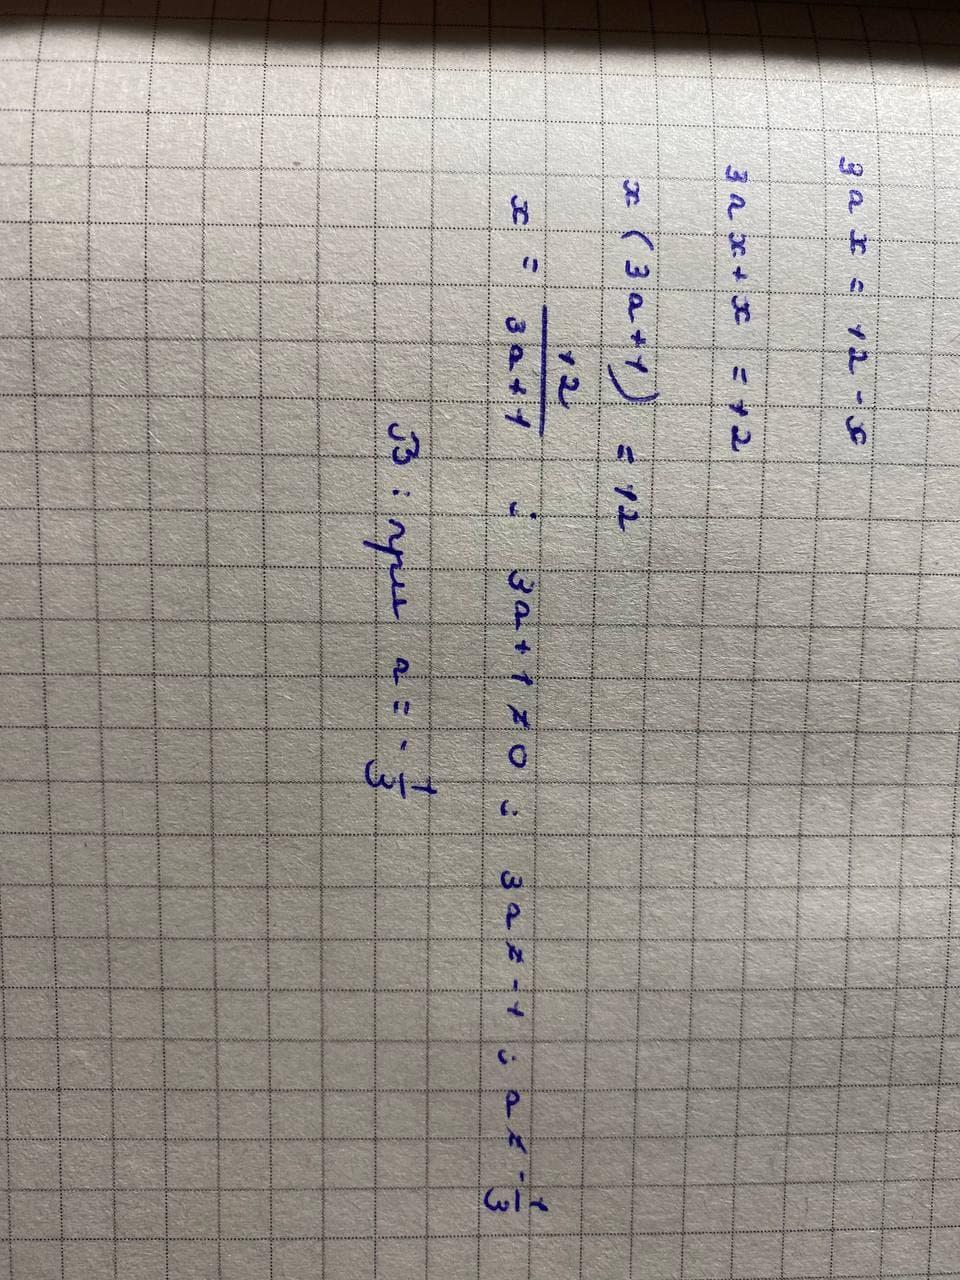 3ax = 12 - x
3ax + x = 12
x(3a+1) = 12
x = 12/(3a+1) ; 3a+1 ≠ 0 ; 3a ≠ -1 ; a ≠ -1/3
В: при a = -1/3